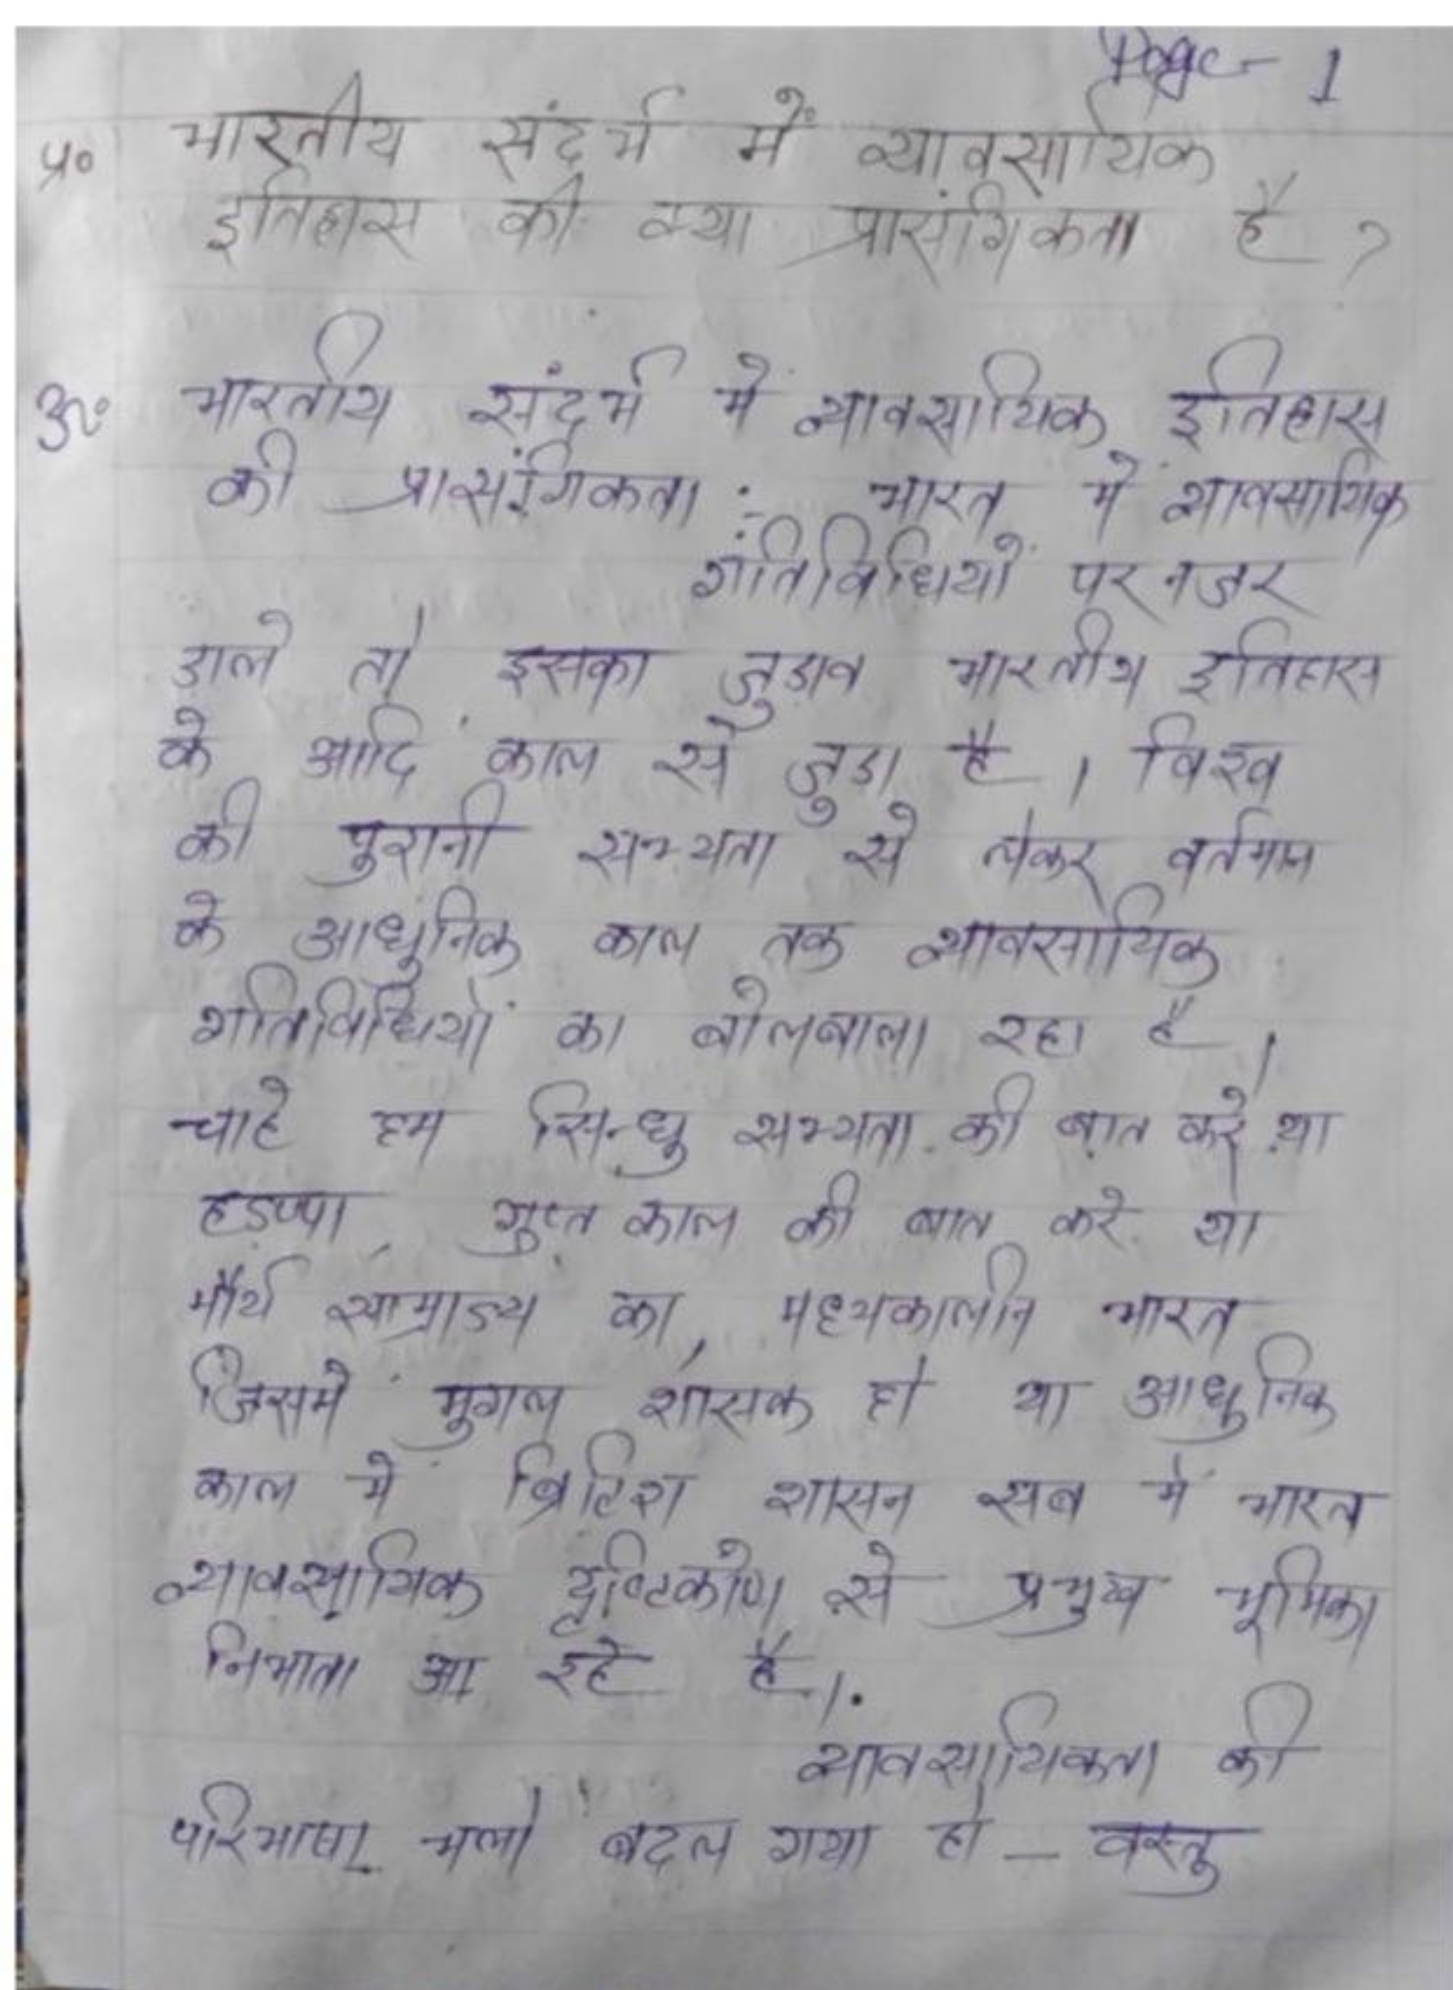 Page- 1
प्र० भारतीय संदर्भ में व्यावसायिक
इतिहास की क्या प्रासंगिकता है ?
उ० भारतीय संदर्भ में व्यावसायिक इतिहास
की प्रासंगिकता :- भारत में व्यावसायिक
गतिविधियों पर नजर
डाले तो इसका जुडाव भारतीय इतिहास
के आदि काल से जुडा है । विश्व
की पुरानी सभ्यता से लेकर वर्तमान
के आधुनिक काल तक व्यावसायिक
गतिविधियों का बोलबाला रहा है ।
चाहे हम सिन्धु सभ्यता की बात करे या
हडप्पा, गुप्त काल की बात करे या
मौर्य साम्राज्य का, मध्यकालीन भारत
जिसमें मुगल शासक हो या आधुनिक
काल में ब्रिटिश शासन सब में भारत
व्यावसायिक दृष्टिकोण से प्रमुख भूमिका
निभाता आ रहे है ।
व्यावसायिकता की
परिभाषा भलो बदल गया हो - वस्तु